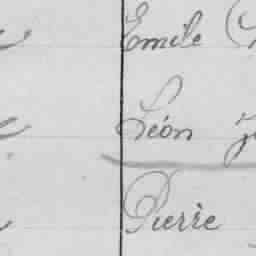 Emile
Léon
Pierre